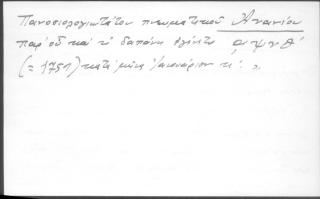 Πανοσιολογιωτάτου πνευματικοῦ Ἀνανίου
παρ' οὗ καὶ ἡ δαπάνη ἐγένετο αψνθ'
(= 1759) κατὰ μῆνα Ἰαννουάριον κ':